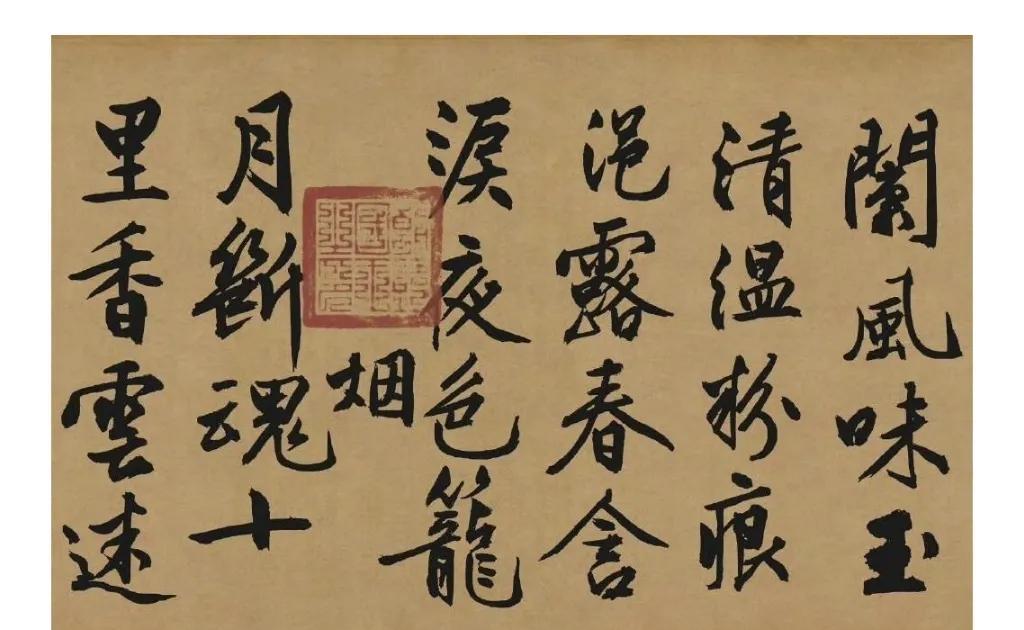 闌風味玉
清温粉痕
浥露春含
淚夜色籠
烟
月斷魂十
里香雲迷